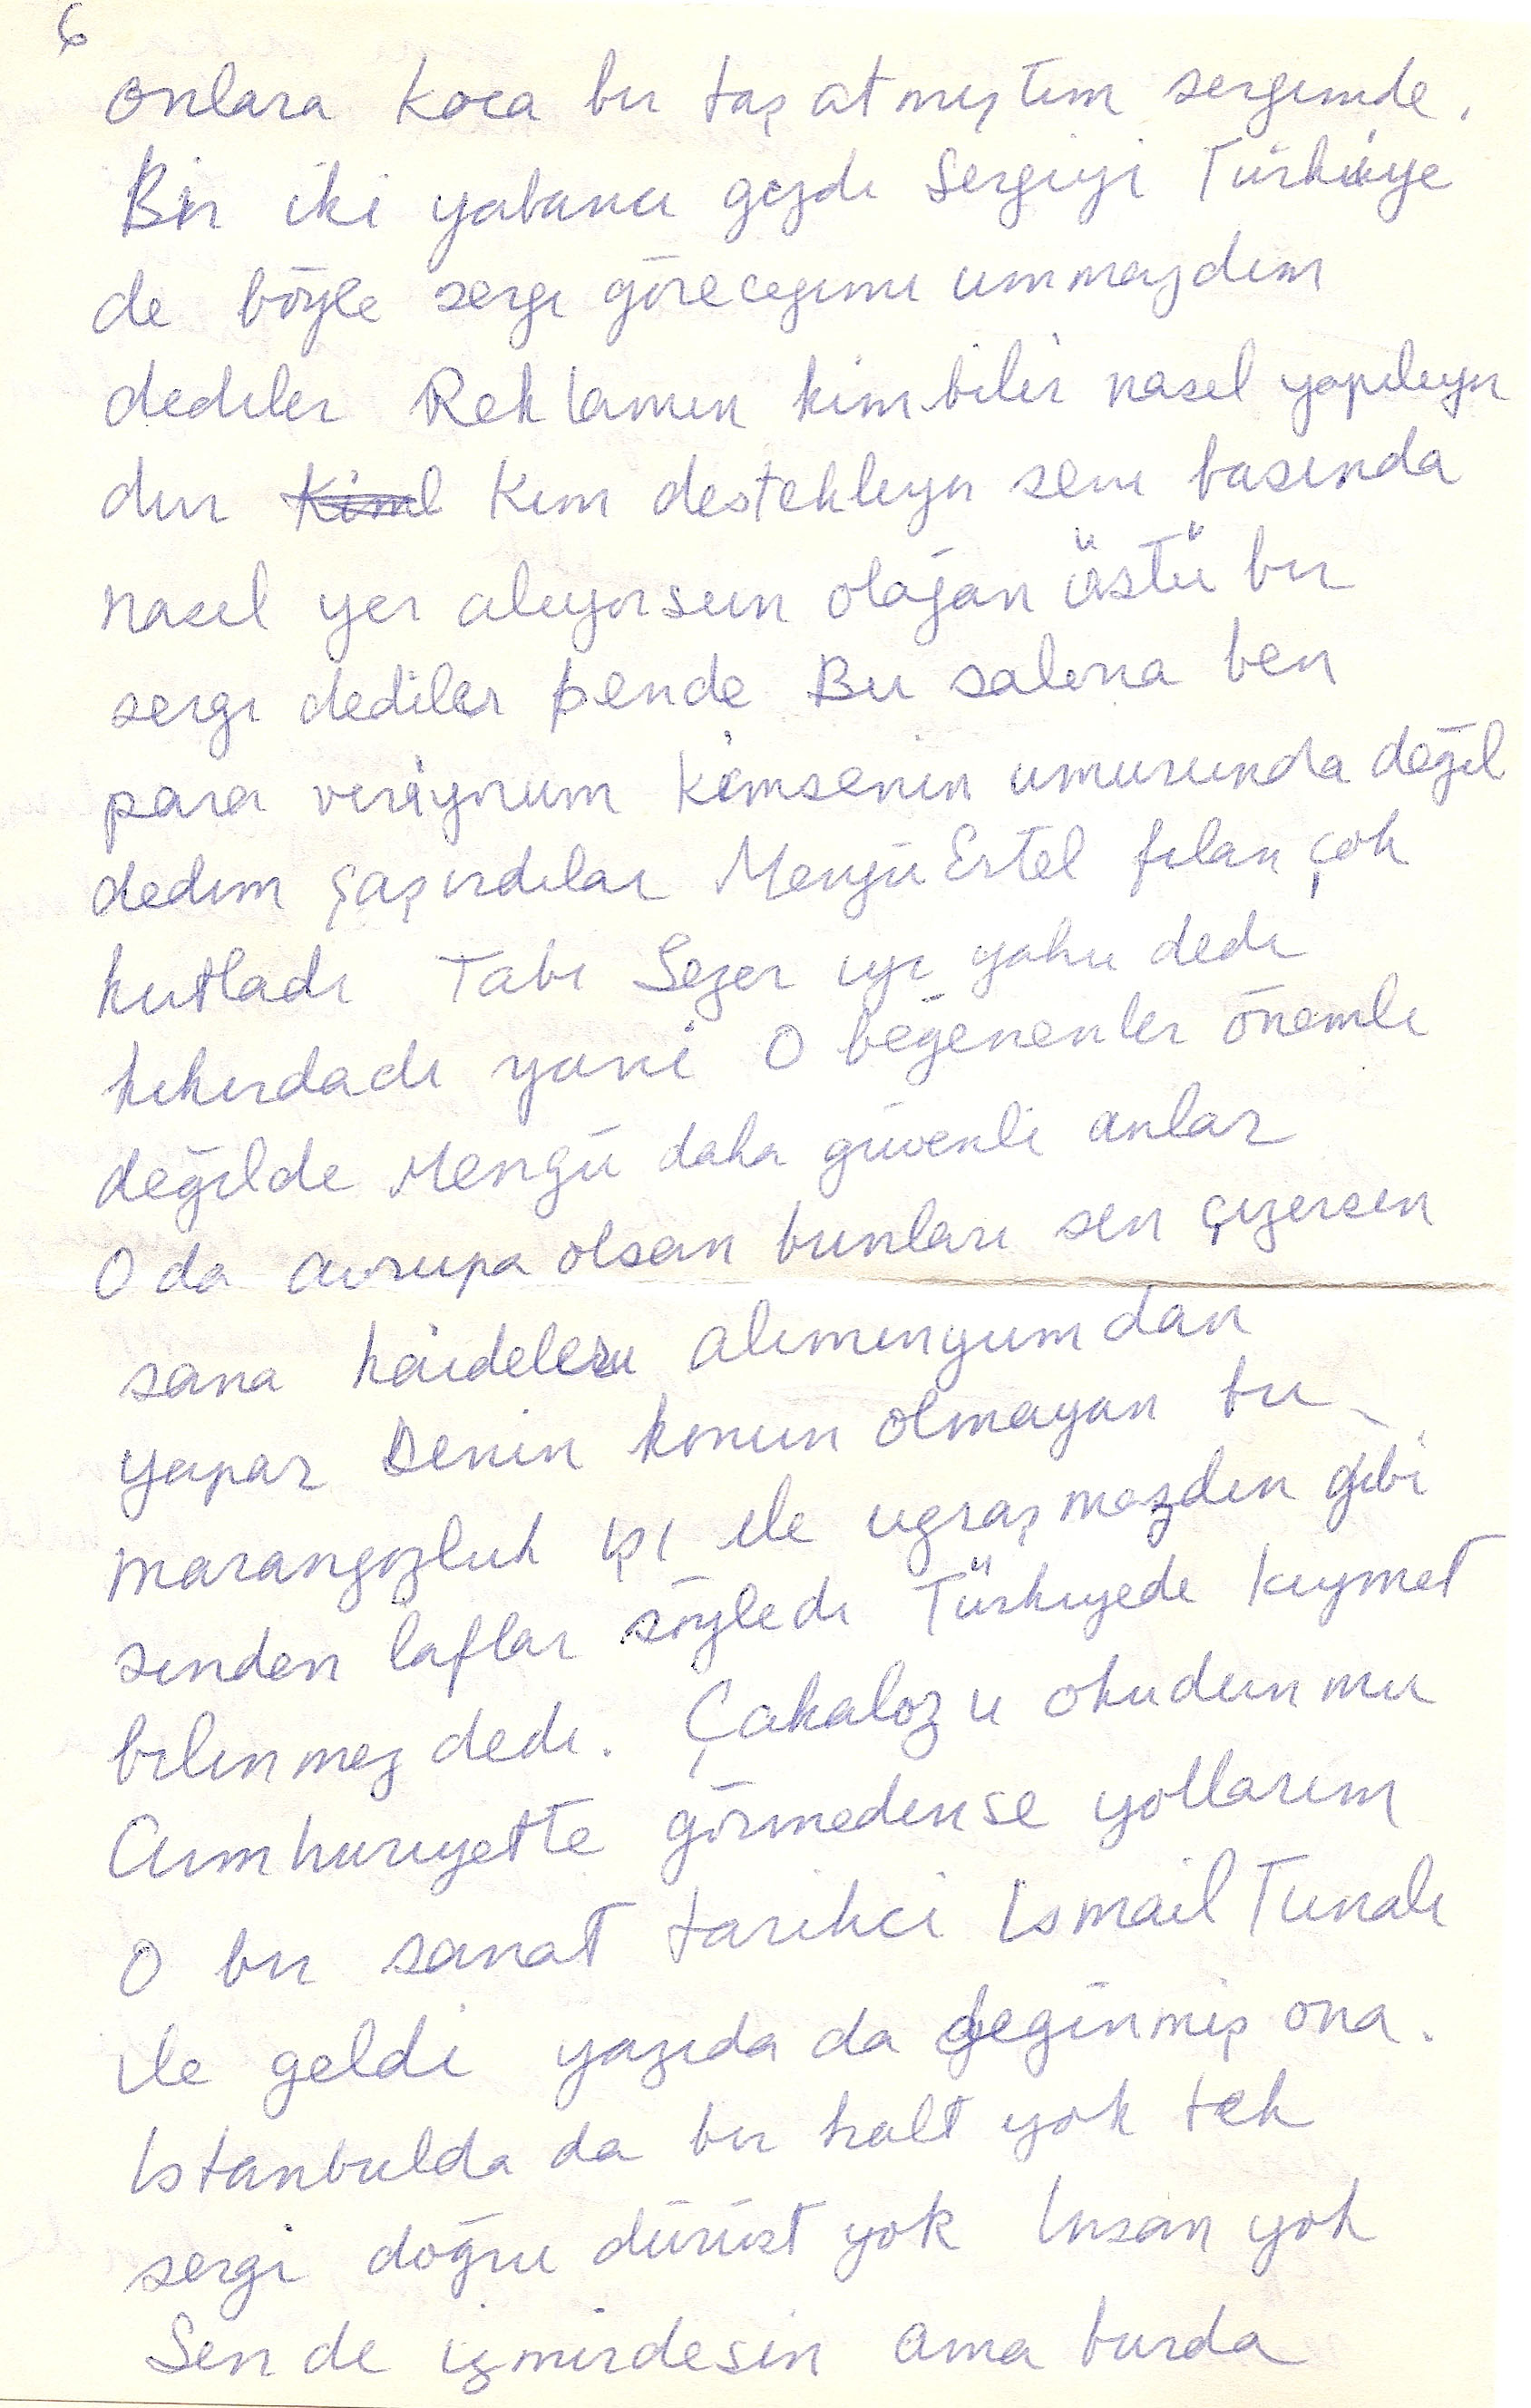 6
onlara koca bir taş atmıştım sergimde.
Bir iki yabancı gezdi sergiyi Türkiye
de böyle sergi göreceğimi ummazdım
dediler Reklamın kimbilir nasıl yapılıyor
dur Kim destekliyor seni basında
nasıl yer alıyorsun olağan üstü bir
sergi dediler bende Bu salona ben
para veriyorum kimsenin umurunda değil
dedim şaşırdılar Mengü Ertel filan çok
kutladı Tabi Sezer iyi yahu dedi
kıkırdadı yani O beğenenler önemli
değilde Mengü daha güvenli anlar
O da avrupa olsan bunları sen çizersen
sana kaideleri alimünyumdan
yapar Senin konun olmayan bu
marangozluk işi ile uğraşmazdın gibi
sinden laflar söyledi Türkiyede kıymet
bilinmez dedi. Çakaloz u okudun mu
Cumhuriyette görmedinse yollarım
O bir sanat tarihci İsmail Tunalı
ile geldi yazıda da değinmiş ona.
İstanbulda da bir halt yok tek
sergi doğru dürüst yok İnsan yok
Sen de izmirdesin ama burda